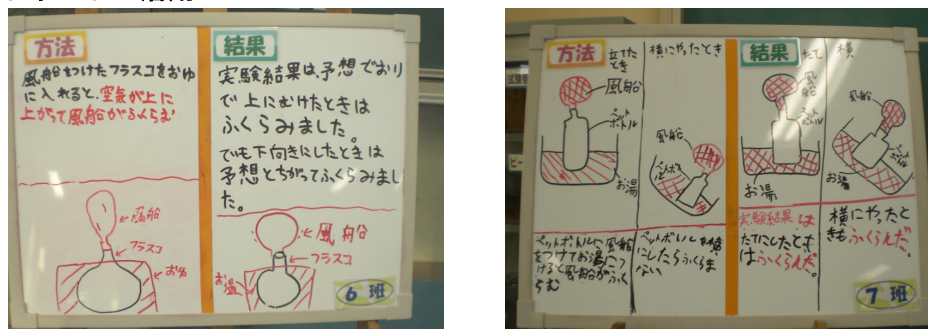 方法
風船をつけたフラスコをおゆ
に入れると、空気が上に
上がって風船がふくらむ
風船
フラスコ
おゆ
結果
実験結果は、予想どおり
で上にむけたときは
ふくらみました。
でも下向きにしたときは
予想とちがってふくらみまし
た。
風船
フラスコ
お湯
6班
方法
立てた
とき
横にやったとき
風船
ペット
ボトル
お湯
風船
ペットボトルに風船
をつけてお湯につ
けると風船がふく
らむ
ペットボトルを横
にしたらふくらま
ない
結果
たて
風船
ペット
ボトル
お湯
横
風船
ペット
ボトル
お湯
実験結果は
たてにしたとき
はふくらんだ。
横にやったと
きもふくらんだ。
7班